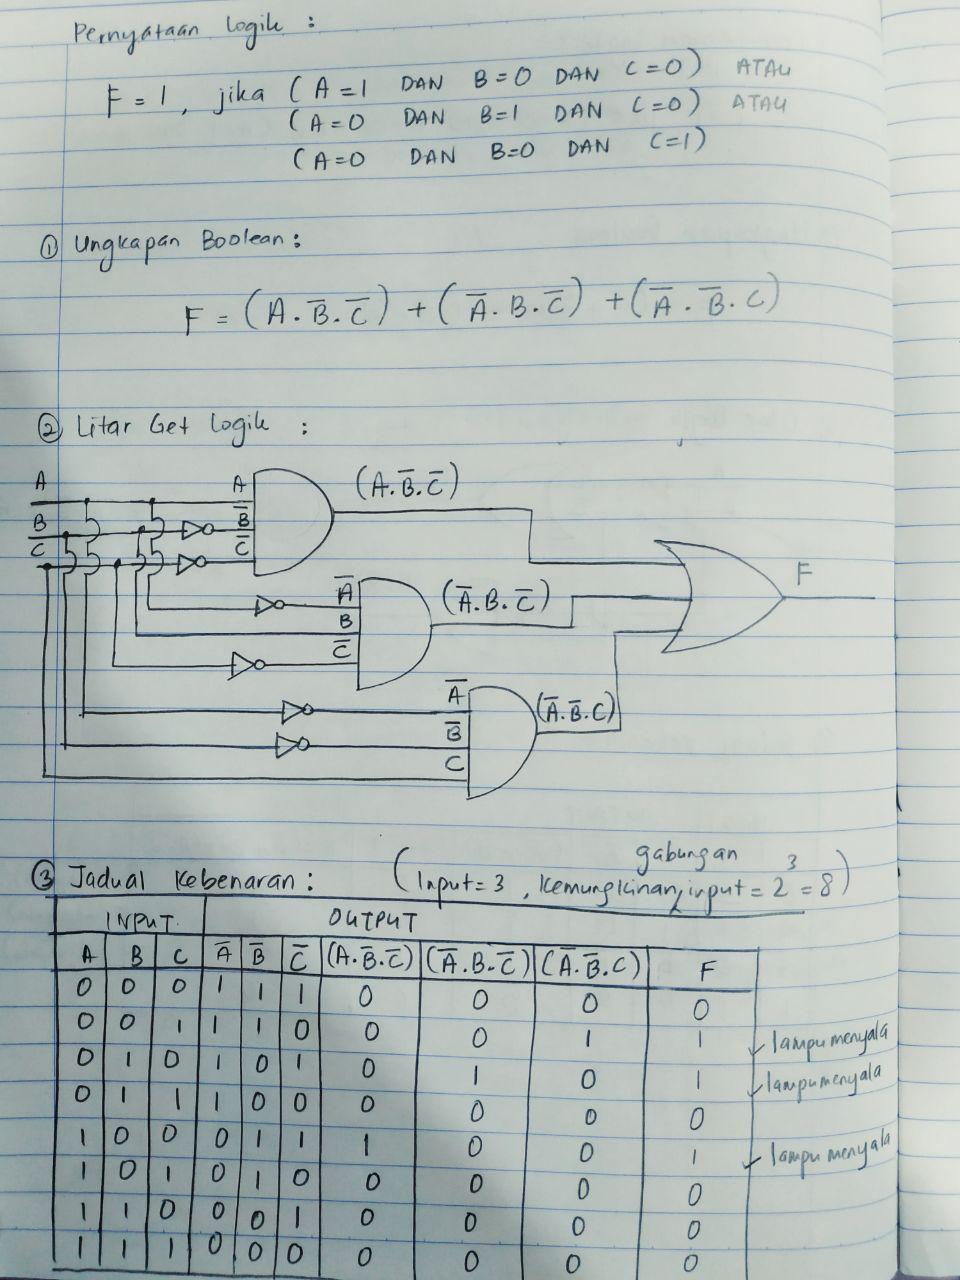 Pernyataan logik :
F = 1, jika (A=1 DAN B=0 DAN C=0) ATAU
(A=0 DAN B=1 DAN C=0) ATAU
(A=0 DAN B=0 DAN C=1)
① Ungkapan Boolean :
F = (A.B̅.C̅) + (A̅.B.C̅) + (A̅.B̅.C)
② Litar Get Logik :
A A (A.B̅.C̅)
B B̅
C C̅
F
A̅ (A̅.B.C̅)
B
C̅
A̅ (A̅.B̅.C)
B̅
C
gabungan
③ Jadual Kebenaran : (Input=3, Kemungkinan input = 2³ = 8)
INPUT OUTPUT
A B C A̅ B̅ C̅ (A.B̅.C̅) (A̅.B.C̅) (A̅.B̅.C) F
0 0 0 1 1 1 0 0 0 0
0 0 1 1 1 0 0 0 1 1 ✓ lampu menyala
0 1 0 1 0 1 0 1 0 1 ✓ lampu menyala
0 1 1 1 0 0 0 0 0 0
1 0 0 0 1 1 1 0 0 1 ✓ lampu menyala
1 0 1 0 1 0 0 0 0 0
1 1 0 0 0 1 0 0 0 0
1 1 1 0 0 0 0 0 0 0